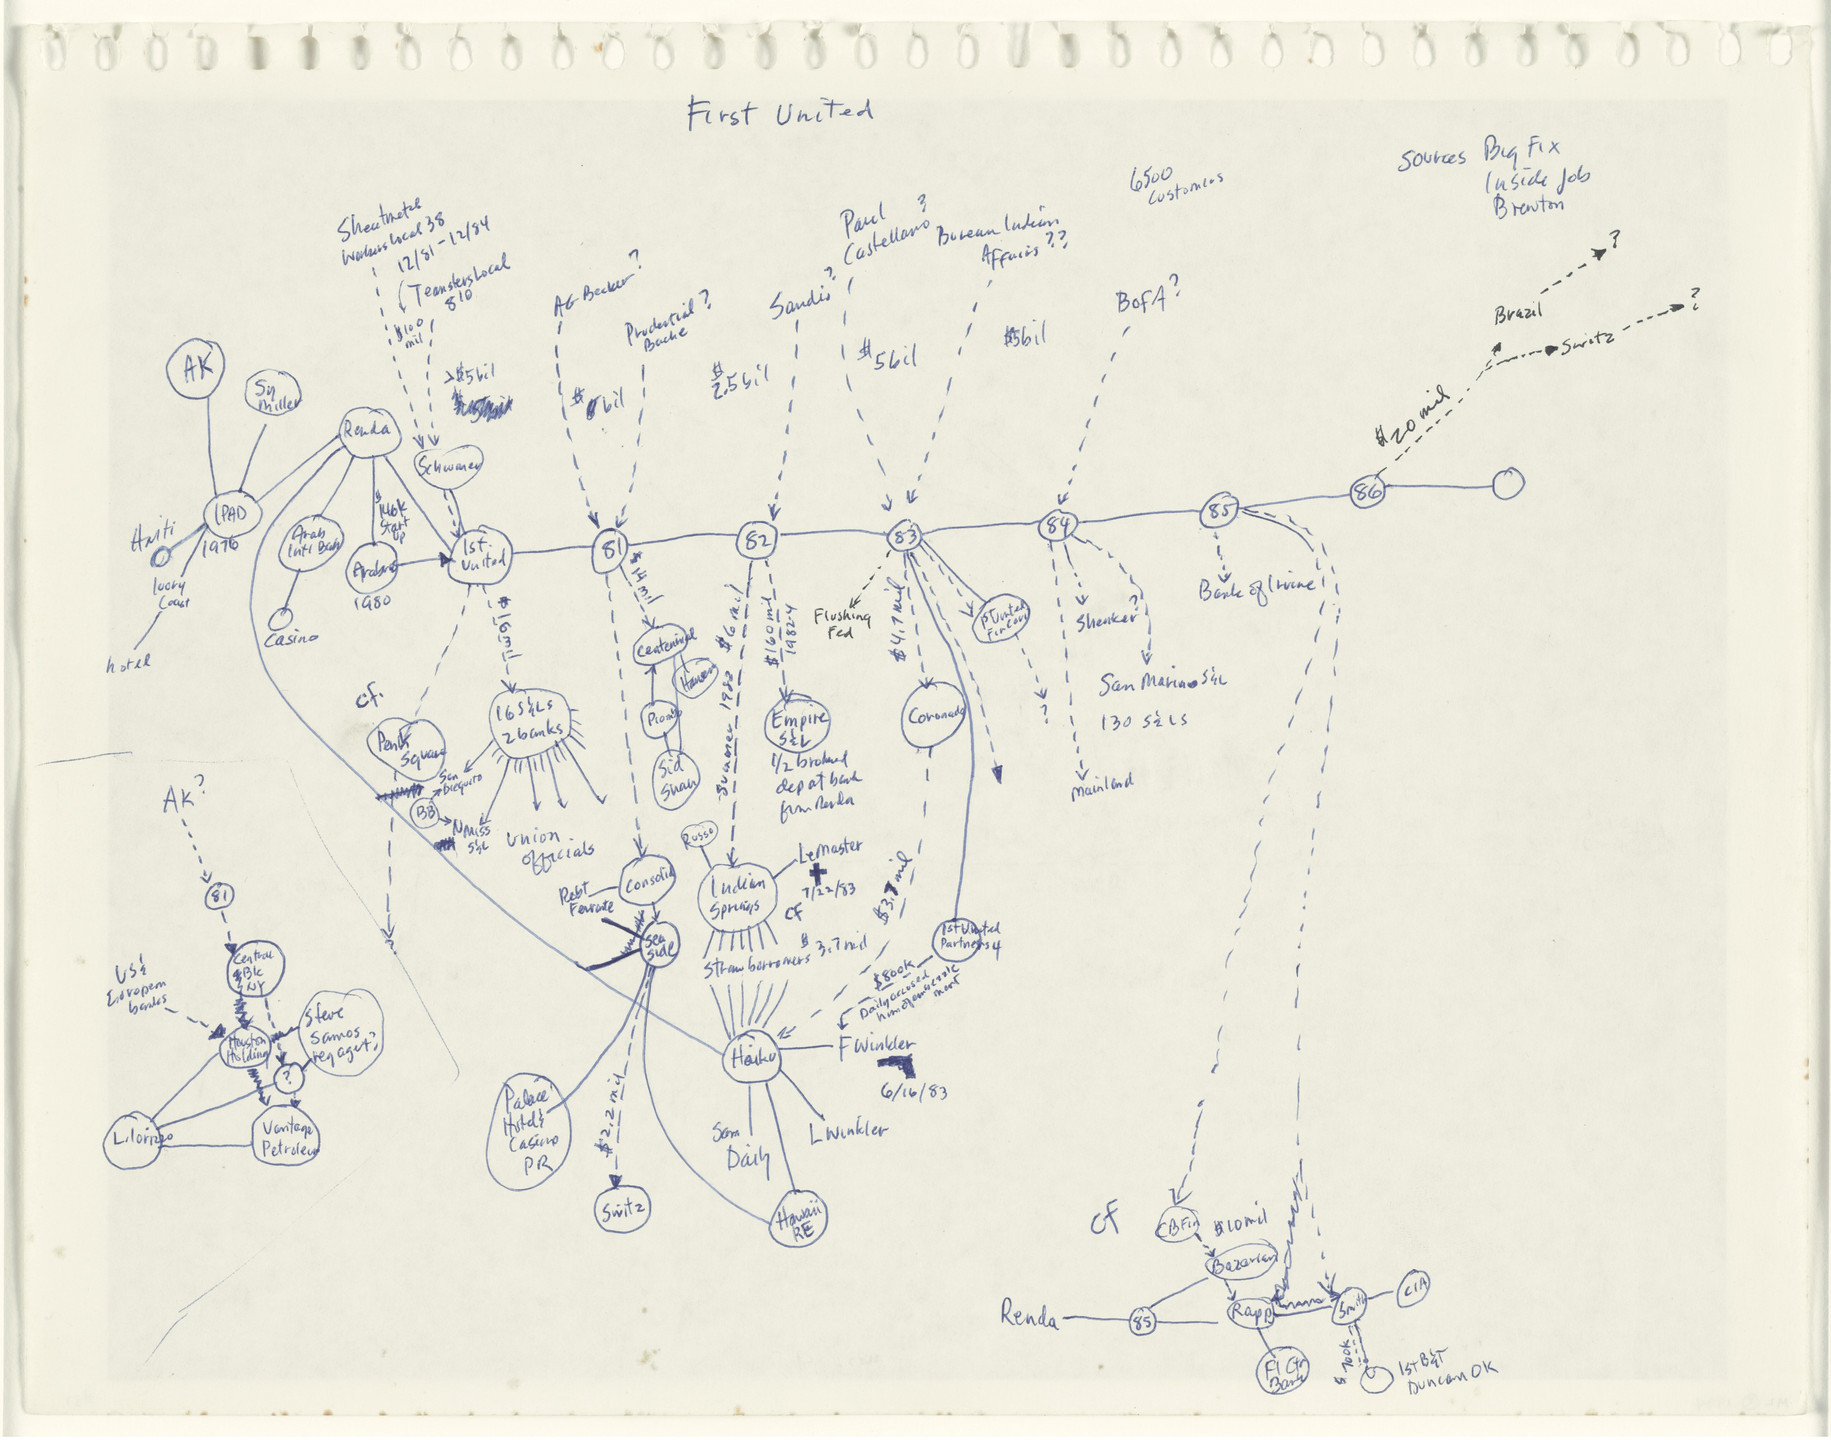 First United
Sources Big Fix
Inside Job
Brewton
6500
customers
Sheetmetal
Workers Local 38
12/81-12/84
Teamsters Local
810
$100
mil
>$5bil
AG Becker?
Prudential?
Bache
$5bil
Sandia?
$
2.5bil
Paul ?
Castellano
$5bil
Bureau Indian
Affairs??
$5bil
BofA?
Brazil
?
Switz
?
$20 mil
AK
Sy
Miller
Renda
Schwimmer
IPAD
1976
Haiti
Ivory
Coast
hotel
Arab
Intl Bank
Casino
$
146K
Start
up
Arabras
1980
1st
United
81
82
83
84
85
86
$16mil
16 S&Ls
2 banks
Union
officials
cf.
Penn
Square
San
Dieguito
BB
N Miss
S&L
$14mil
Centennial
Hansen
Pizado
Sid
Shah
Summer 1982 $6 mil
$160mil
1982-4
Empire
S&L
1/2 brokered
depat bank
from Renda
Flushing
Fed
$4.7 mil
Coronado
1st United
Fin Corp
?
Shenker?
San Marino S&L
130 S&Ls
Mainland
Bank of Irvine
AK?
81
Central
Bk
NY
US &
European
banks
Houston
Holding
Steve
Samos
reg agent?
?
Lilorizzo
Vantage
Petroleum
Consolid
Robt
Ferrante
Sea
side
Palace
Hotel &
Casino
PR
$2.2 mil
Switz
Russo
Indian
Springs
Lemaster
7/22/83
cf
Straw borrowers $3.7mil
$3.7 mil
1st United
Partners 4
$800K
Daily accused
him of embezzle
ment
Haiku
F Winkler
6/16/83
L Winkler
Sam
Daily
Hawaii
RE
cf
CB Fin
$10mil
Bazarian
Renda
85
Rapp
Smith
CIA
Fl Ctr
Bank
$700K
1st B&T
Duncan OK